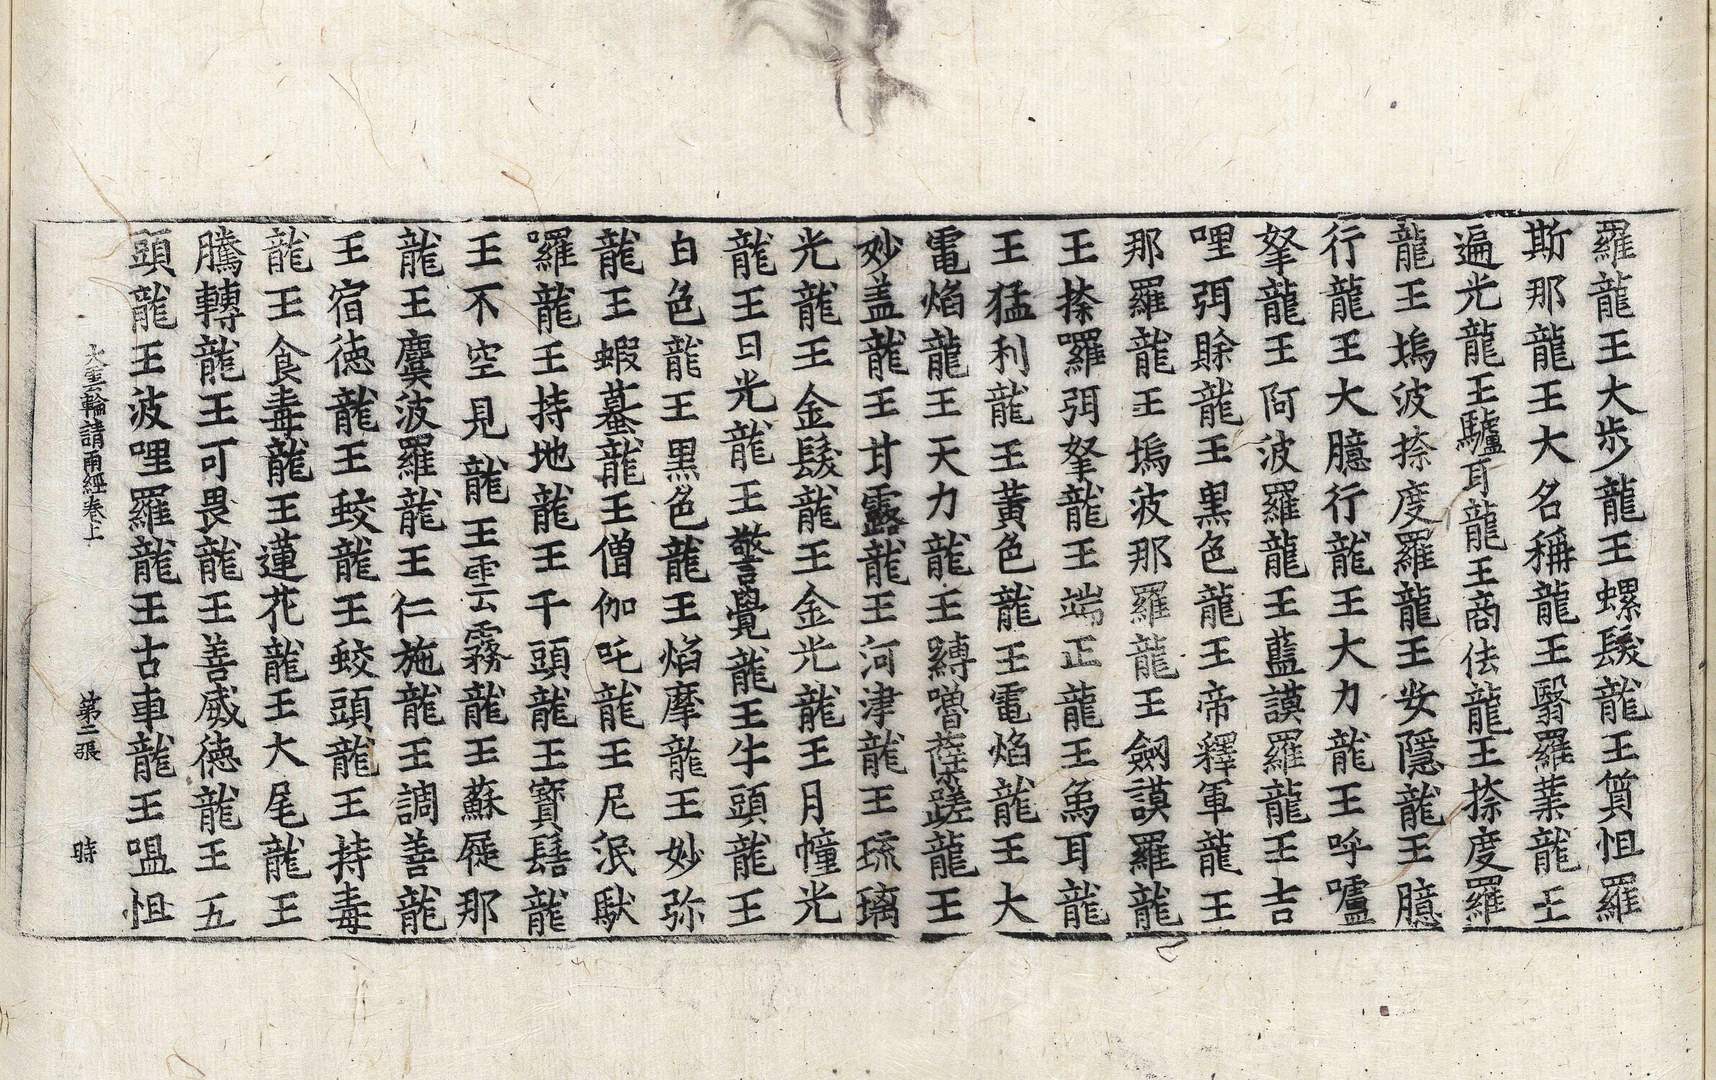 羅龍王大步龍王螺髮龍王質怛羅
斯那龍王大名稱龍王翳羅葉龍王
遍光龍王驢耳龍王商佉龍王捺度羅
龍王塢波捺度羅龍王安隱龍王臆
行龍王大臆行龍王大力龍王呼嚧
拏龍王阿波羅龍王藍謨羅龍王吉
哩弭賒龍王黑色龍王帝釋軍龍王
那羅龍王塢波那羅龍王劒謨羅龍
王捺囉弭拏龍王端正龍王象耳龍
王猛利龍王黃色龍王電焰龍王大
電焰龍王天力龍王縛噜蹉龍王
妙盖龍王甘露龍王河津龍王琉璃
光龍王金髮龍王金光龍王月幢光
龍王日光龍王警覺龍王牛頭龍王
白色龍王黑色龍王焰摩龍王妙弥
龍王蝦蟇龍王僧伽吒龍王尼泯馱
囉龍王持地龍王千頭龍王寶髻龍
王不空見龍王雲霧龍王蘇屣那
龍王麌波羅龍王仁施龍王調善龍
王宿德龍王蛟龍王蛟頭龍王持毒
龍王食毒龍王蓮花龍王大尾龍王
騰轉龍王可畏龍王善威德龍王五
頭龍王波哩羅龍王古車龍王嗢怛
大雲輪請雨經卷上 第二張 時